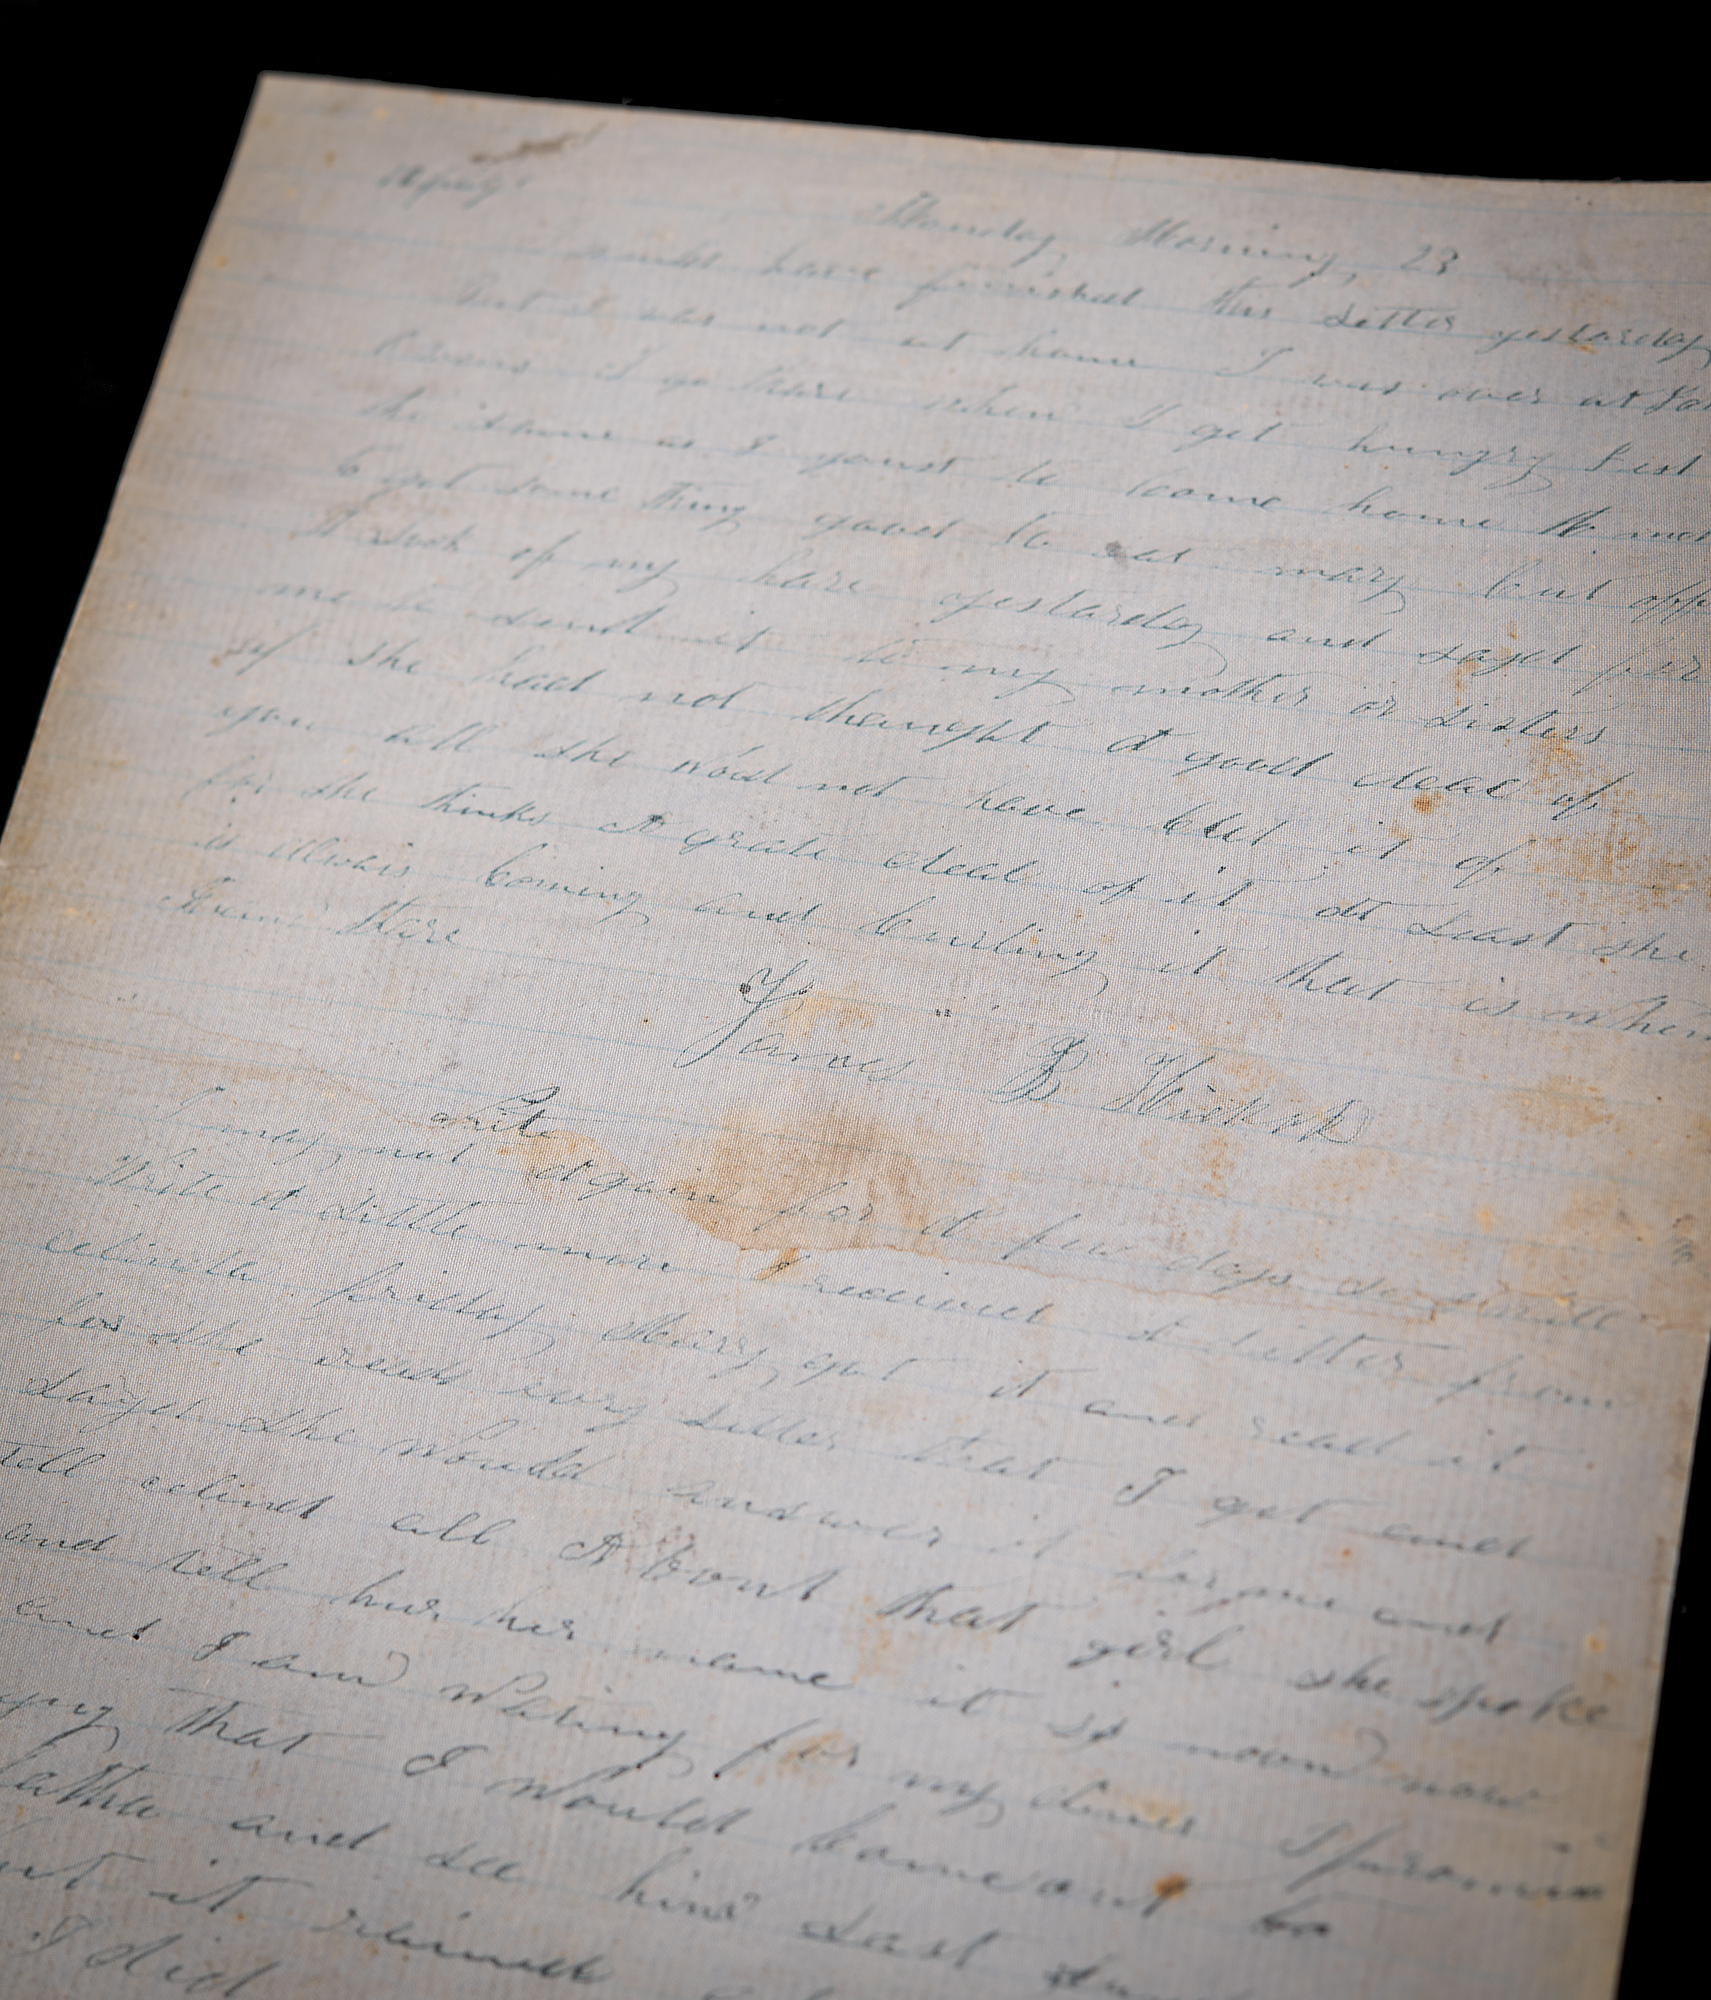 Monday Morning, 23
have finished this Letter yestarday
but I was not at home I was over at
I go thare when I get hungry Just
the same as I youst to Come home to
to get some thing good to eat mary Cut off
A Lock of my hare yestarday and sayed for
me to send it to my mother or Sisters
if she had not thaught A good deal of
you all she Woud not have Cut it of
for she thinks A grate deal of it At Least she
is allwais Coming and Curling it that is when
I am hare
James B Hickok
I may not write Again for A few days
Write A Little more I received A Letter from
celinda friday Mary got it and read it
for she reads every Letter that I get and
sayed she Would answer it for me and
tell celind all A bout that girl she spoke
and tell hur her name it is noon now
and I am Wating for my diner I
that I Would Come out to
and see him Last
it rained
I did